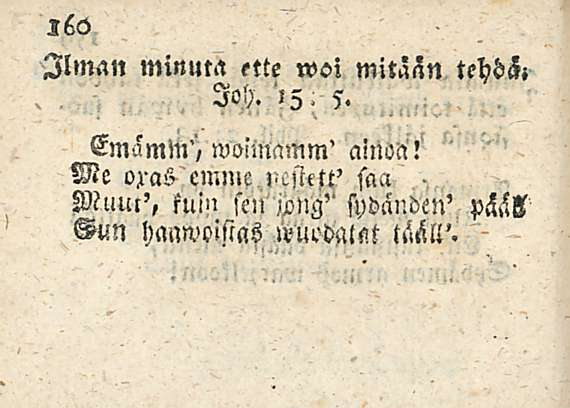 160
Ilman minuta ette woi mitään tehdä.
Joh. 15: 5.
Emämm', woimamm' ainoa!
Me oxas emme nestett' saa
Muut', kuin sen jong' sydänden' pääl
Sun haawoistas wuodatat tääll'.